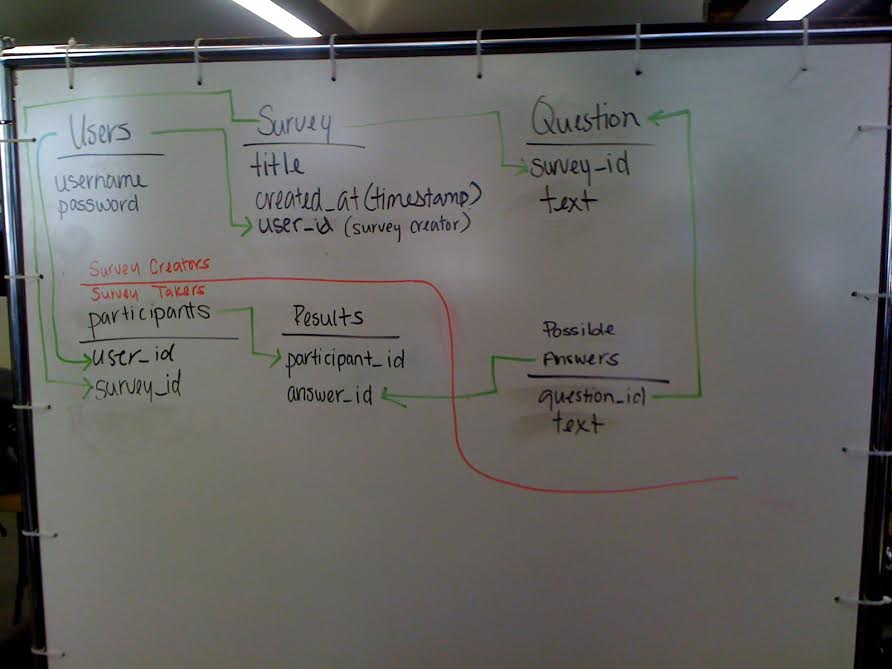 Users
username
password
Survey
title
created_at (timestamp)
user_id (survey creator)
Question
survey_id
text
Survey Creators
Survey Takers
participants
user_id
survey_id
Results
participant_id
answer_id
Possible
Answers
question_id
text